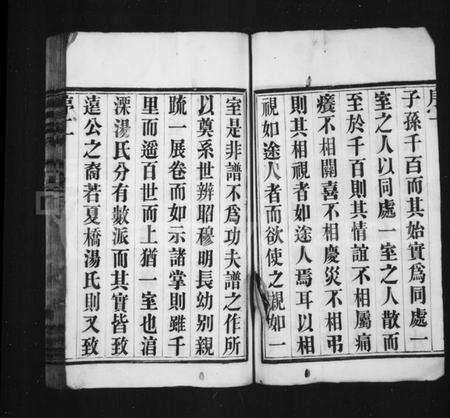 子孫千百而其始實爲同處一
室之人以同處一室之人散而
至於千百則其情誼不相屬痛
癢不相關喜不相慶災不相弔
則其相視者如途人焉耳以相
視如途人者而欲使之視如一
室是非譜不爲功夫譜之作所
以奠系世辨昭穆明長幼别親
䟽一展卷而如示諸掌則雖千
里而遥百世而上猶一室也涓
溧湯氏分有數派而其實皆致
遠公之裔若夏橋湯氏則又致
序二